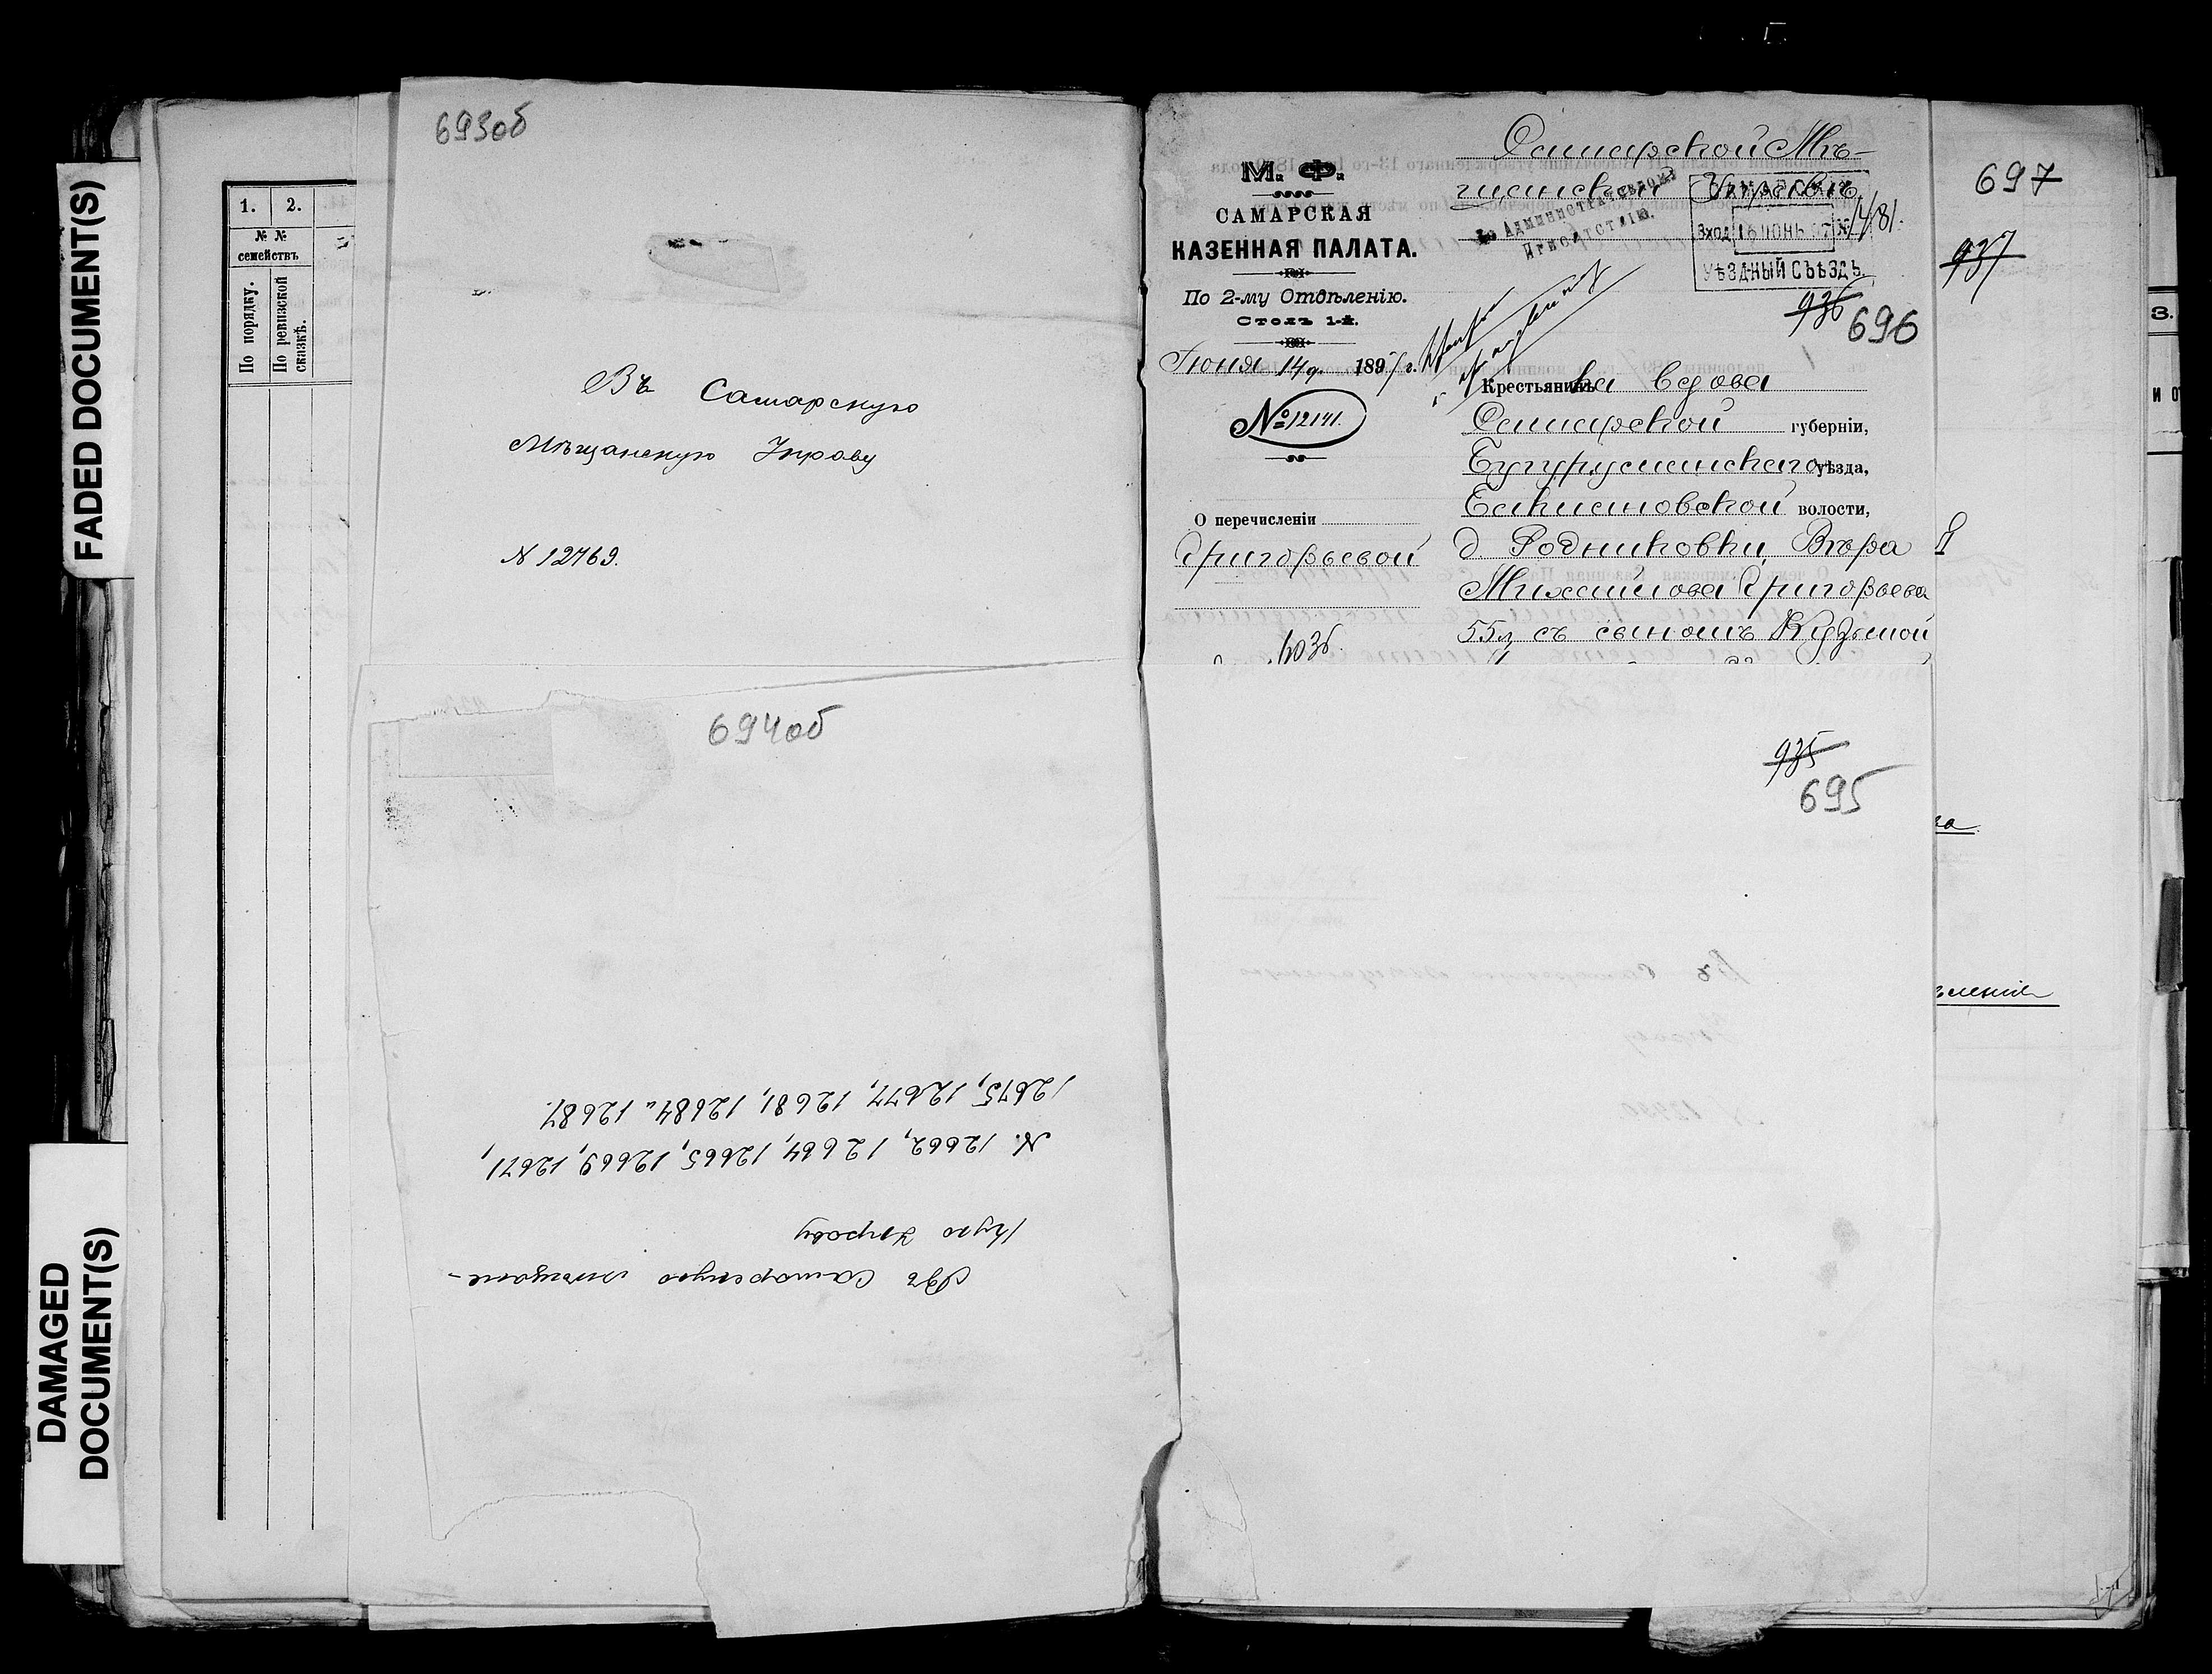 FADED DOCUMENT(S)
DAMAGED
DOCUMENT(S)
1. 2.
№ №
семействъ
По порядку.
По ревизской
сказкѣ.
693об
Въ Самарскую
Мѣщанскую Управу
N 12769.
694об
Въ Самарскую мѣщанс-
кую Управу
N. 12662, 12664, 12665, 12669, 12671,
12675, 12677, 12681, 12684 и 12687.
М. Ф.
САМАРСКАЯ
КАЗЕННАЯ ПАЛАТА.
По 2-му Отдѣленію.
Столъ 1-й.
Іюня 14 д. 1897 г.
№ 12141.
О перечисленіи
Григорьевой
Самарской Мѣ-
щанской Управѣ
По Административному
Присутствію.
Вход. 16 ІЮНЬ 97 №
УѢЗДНЫЙ СЪѢЗДЪ.
936
696
Крестьянинъ ка вдова
Самарской губерніи,
Бугурусланскаго уѣзда,
волости,
д Родниковки, Вѣра
Михайлова Григорьева
55 л, съ сыномъ Кузьмой
935
695
697
937
3.